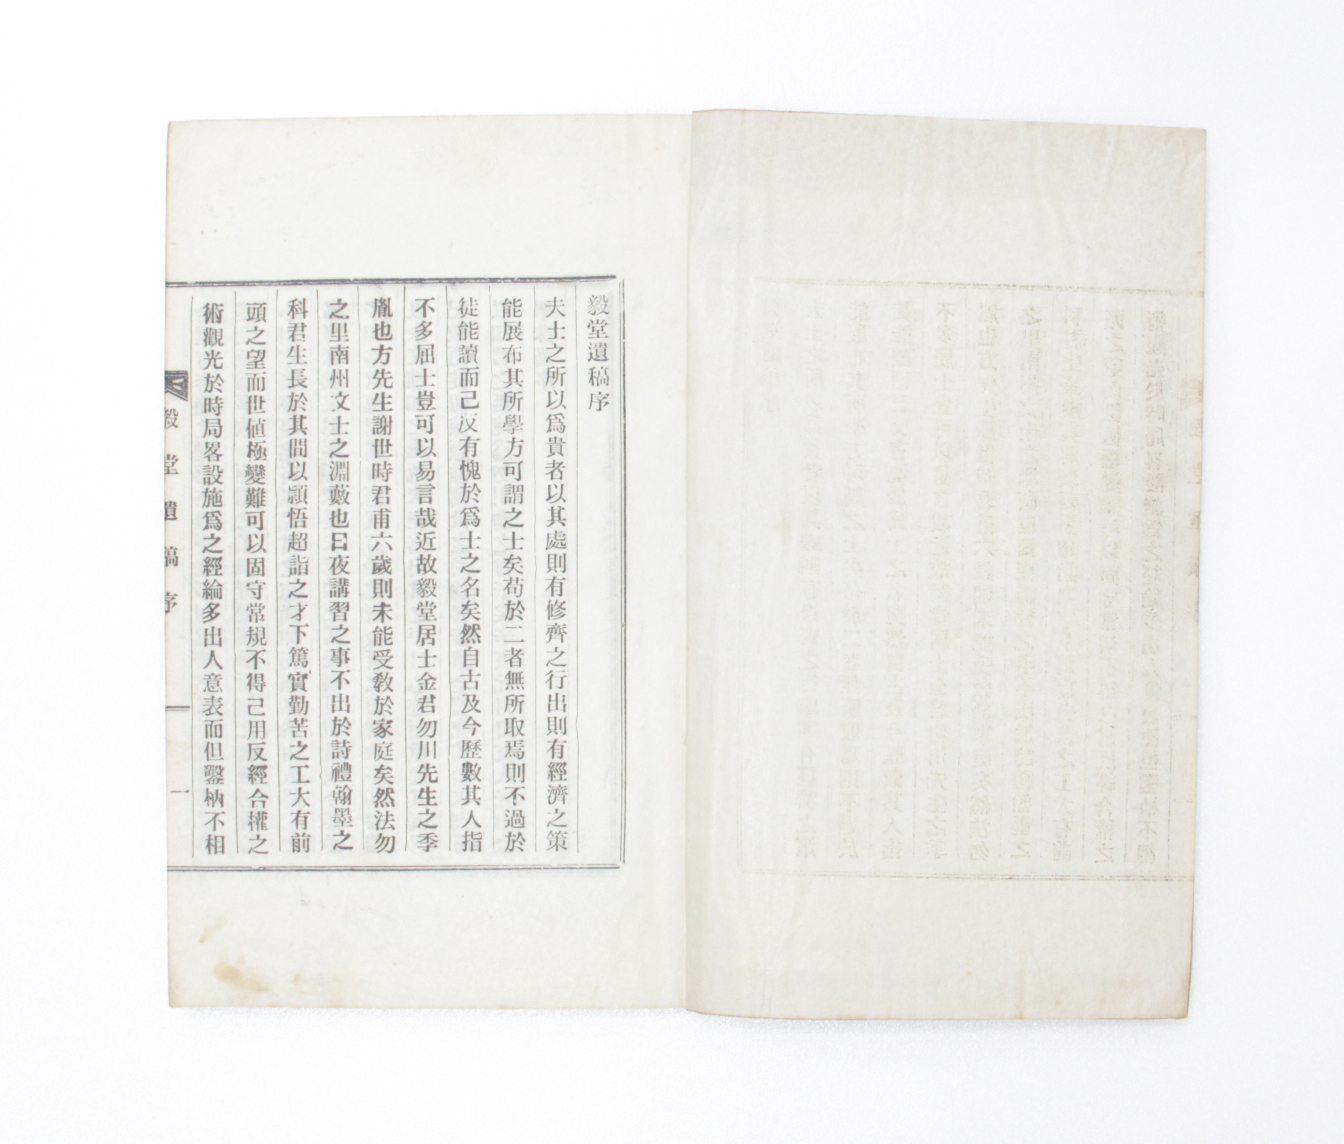 毅堂遺稿序
夫士之所以爲貴者以其處則有修齊之行出則有經濟之策
能展布其所學方可謂之士矣苟於二者無所取焉則不過於
徒能讀而己反有愧於爲士之名矣然自古及今歷數其人指
不多屈士豈可以易言哉近故毅堂居士金君勿川先生之季
胤也方先生謝世時君甫六歲則未能受敎於家庭矣然法勿
之里南州文士之淵藪也日夜講習之事不出於詩禮翰墨之
科君生長於其間以頴悟超詣之才下篤實勤苦之工大有前
頭之望而世値極變難可以固守常規不得己用反經合權之
術觀光於時局畧設施爲之經綸多出人意表而但鑿枘不相
毅堂遺稿序
一